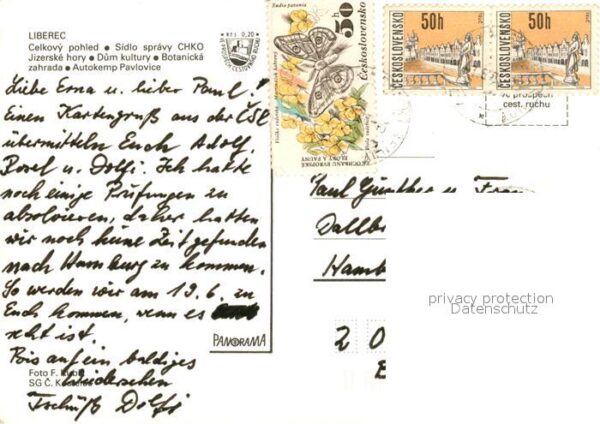 LIBEREC
Celkový pohled • Sídlo správy CHKO
Jizerské hory • Dům kultury • Botanická
zahrada • Autokemp Pavlovice
Kčs 0,20
Liebe Erna u. lieber Paul!
Einen Kartengruß aus der ČSL
übermitteln Euch Adolf,
u. Dolfi. Ich hatte
noch einige Prüfungen zu
absolvieren, daher hatten
wir noch keine Zeit gefunden
nach Hamburg zu kommen.
So werden wir am 19.6. zu
Euch kommen, wenn es
recht ist.
Bis auf ein baldiges
Wiedersehen
Tschüß Dolfi
Foto F.
SG Č.
PANORAMA
50
Československo
ZA OCHRANU EVROPSKÉ
FLÓRY A FAUNY
ČESKOSLOVENSKO
50h
ČESKOSLOVENSKO
50h
ve prospěch
cest. ruchu
Paul Günther u.
Hamb
privacy protection
Datenschutz
2 0